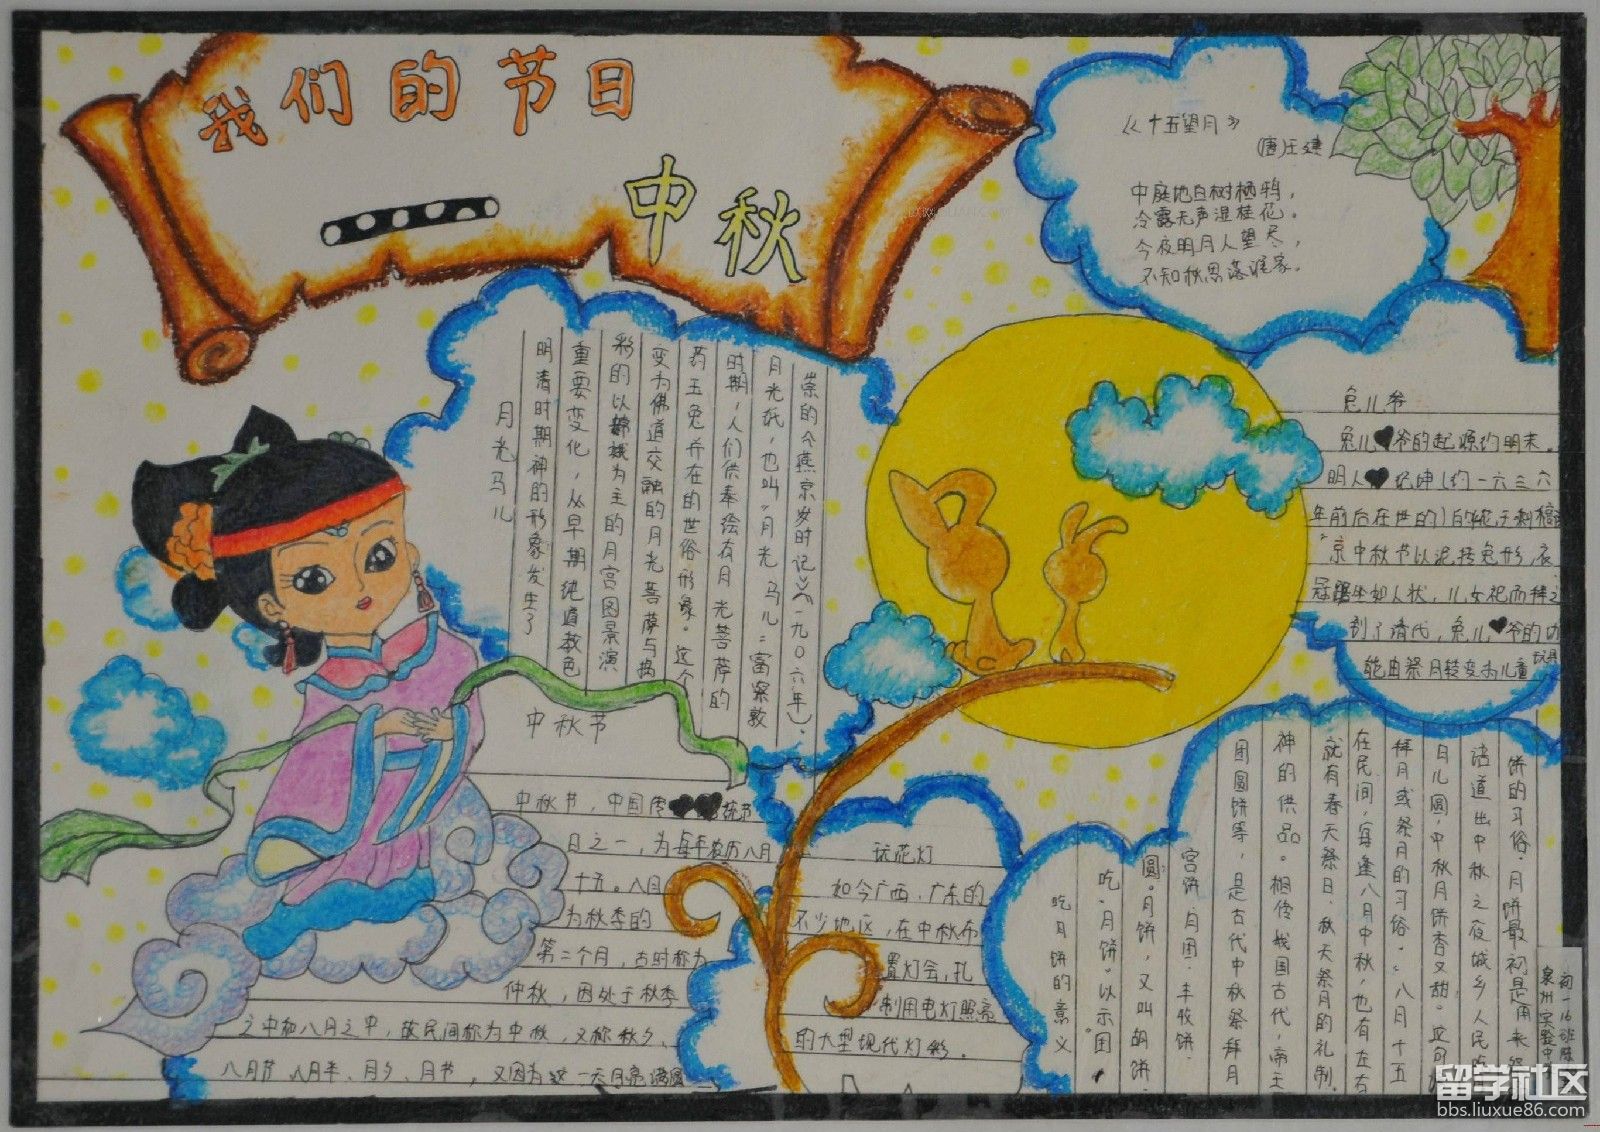 我们的节日
中秋
《十五望月》
(唐)王建
中庭地白树栖鸦，
冷露无声湿桂花。
今夜明月人望尽，
不知秋思落谁家。
月光马儿
明清时期神的形象发生了
重要变化，从早期纯道教色
彩的以嫦娥为主的月宫图景演
变为佛道交融的月光菩萨与捣
药玉兔并在的世俗形象。这个
时期，人们供奉绘有月光菩萨的
月光纸，也叫"月光马儿"富察敦
崇的《燕京岁时记》（一九〇六年）
兔儿爷
兔儿爷的起源约明末。
明人纪坤（约一六三六
年前后在世的）
京中秋节以泥抟兔形，衣
冠踞坐如人状，儿女祀而拜之
到了清代，兔儿爷的功
能由祭月转变为儿童玩具
中秋节
中秋节，中国传统节
日之一，为每年农历八月
十五。八月
为秋季的
第二个月，古时称为
仲秋，因处于秋季
之中和八月之中，故民间称为中秋，又称秋夕、
八月节、八月半、月夕、月节，又因为这一天月亮满圆
玩花灯
如今广西，广东的
不少地区，在中秋布
置灯会，扎
制用电灯照亮
的大型现代灯彩。
吃月饼的意义
吃"月饼"以示"团
圆"。月饼，又叫胡饼，
宫饼、月团、丰收饼、
团圆饼等，是古代中秋祭拜月
神的供品。相传我国古代，帝王
就有春天祭日、秋天祭月的礼制。
在民间，每逢八月中秋，也有左右
拜月或祭月的习俗。"八月十五
月儿圆，中秋月饼香又甜"。这句
话道出中秋之夜城乡人民吃
饼的习俗。月饼最初是用来
初一16班
泉州实验中
留学社区
bbs.liuxue86.com